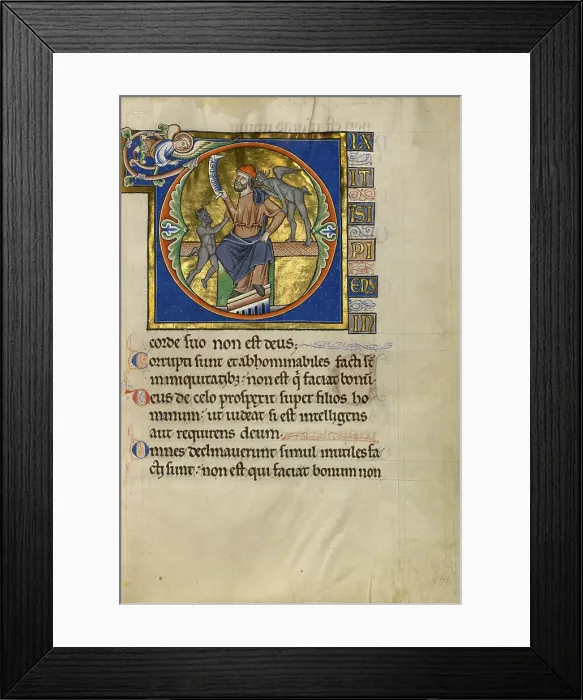 IX
IT
ISI
PI
ENS
IN
corde suo non est deus;
Corrupti sunt et abhominabiles facti sē
in iniquitatibꝫ: non est q̄ faciat bonū·
Deus de celo prospexit super filios ho
minum: ut uideat si est intelligens
aut requirens deum.
Omnes declinauerunt simul inutiles fa
cti sunt: non est qui faciat bonum non